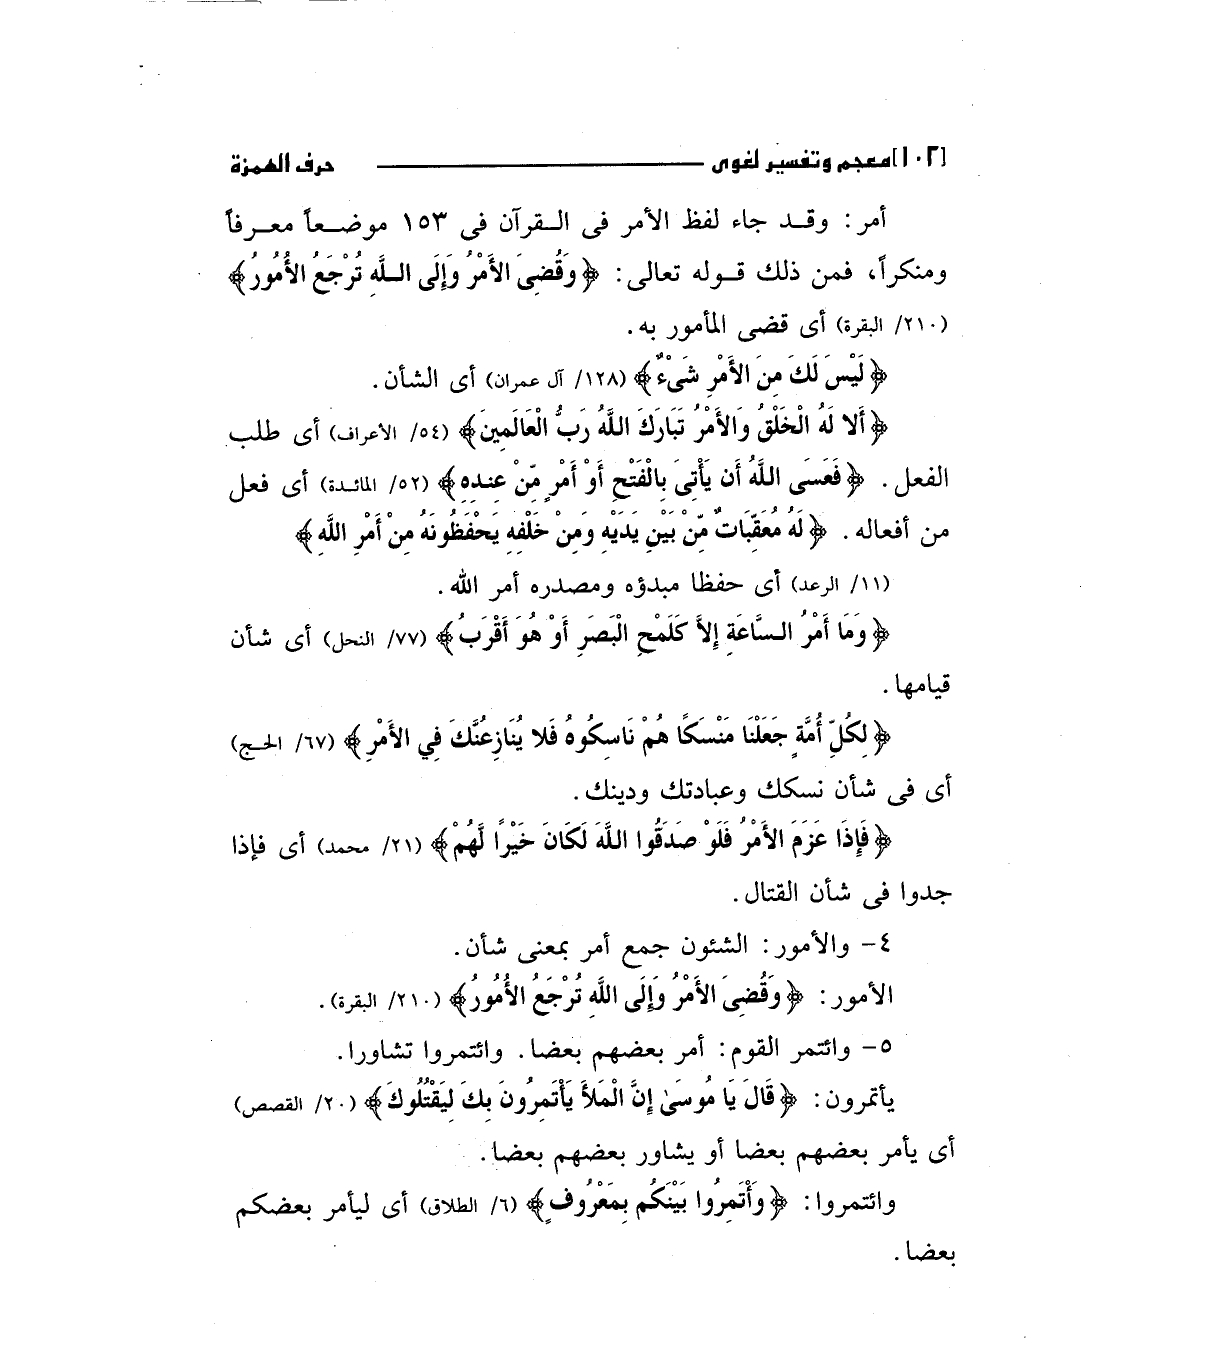 [١٠٢] معجم وتفسير لغوى ـــــــ حرف الهمزة
أمر: وقـد جاء لفظ الأمر فى الـقرآن فى ١٥٣ موضـعاً معـرفاً
ومنكراً، فمن ذلك قـوله تعالى: ﴿وَقُضِىَ الأَمْرُ وَإِلَى اللَّهِ تُرْجَعُ الأُمُورُ﴾
(٢١٠/ البقرة) أى قضى المأمور به.
﴿لَيْسَ لَكَ مِنَ الأَمْرِ شَىْءٌ﴾ (١٢٨/ آل عمران) أى الشأن.
﴿أَلا لَهُ الْخَلْقُ وَالأَمْرُ تَبَارَكَ اللَّهُ رَبُّ الْعَالَمِينَ﴾ (٥٤/ الأعراف) أى طلب
الفعل. ﴿فَعَسَى اللَّهُ أَن يَأْتِىَ بِالْفَتْحِ أَوْ أَمْرٍ مِّنْ عِندِهِ﴾ (٥٢/ المائدة) أى فعل
من أفعاله. ﴿لَهُ مُعَقِّبَاتٌ مِّنْ بَيْنِ يَدَيْهِ وَمِنْ خَلْفِهِ يَحْفَظُونَهُ مِنْ أَمْرِ اللَّهِ﴾
(١١/ الرعد) أى حفظا مبدؤه ومصدره أمر الله.
﴿وَمَا أَمْرُ السَّاعَةِ إِلاَّ كَلَمْحِ الْبَصَرِ أَوْ هُوَ أَقْرَبُ﴾ (٧٧/ النحل) أى شأن
قيامها.
﴿لِكُلِّ أُمَّةٍ جَعَلْنَا مَنْسَكًا هُمْ نَاسِكُوهُ فَلا يُنَازِعُنَّكَ فِي الأَمْرِ﴾ (٦٧/ الحج)
أى فى شأن نسكك وعبادتك ودينك.
﴿فَإِذَا عَزَمَ الأَمْرُ فَلَوْ صَدَقُوا اللَّهَ لَكَانَ خَيْرًا لَّهُمْ﴾ (٢١/ محمد) أى فإذا
جدوا فى شأن القتال.
٤- والأمور: الشئون جمع أمر بمعنى شأن.
الأمور: ﴿وَقُضِىَ الأَمْرُ وَإِلَى اللَّهِ تُرْجَعُ الأُمُورُ﴾ (٢١٠/ البقرة).
٥- وائتمر القوم: أمر بعضهم بعضا. وائتمروا تشاورا.
يأتمرون: ﴿قَالَ يَا مُوسَىٰ إِنَّ الْمَلأَ يَأْتَمِرُونَ بِكَ لِيَقْتُلُوكَ﴾ (٢٠/ القصص)
أى يأمر بعضهم بعضا أو يشاور بعضهم بعضا.
وائتمروا: ﴿وَأْتَمِرُوا بَيْنَكُم بِمَعْرُوفٍ﴾ (٦/ الطلاق) أى ليأمر بعضكم
بعضا.